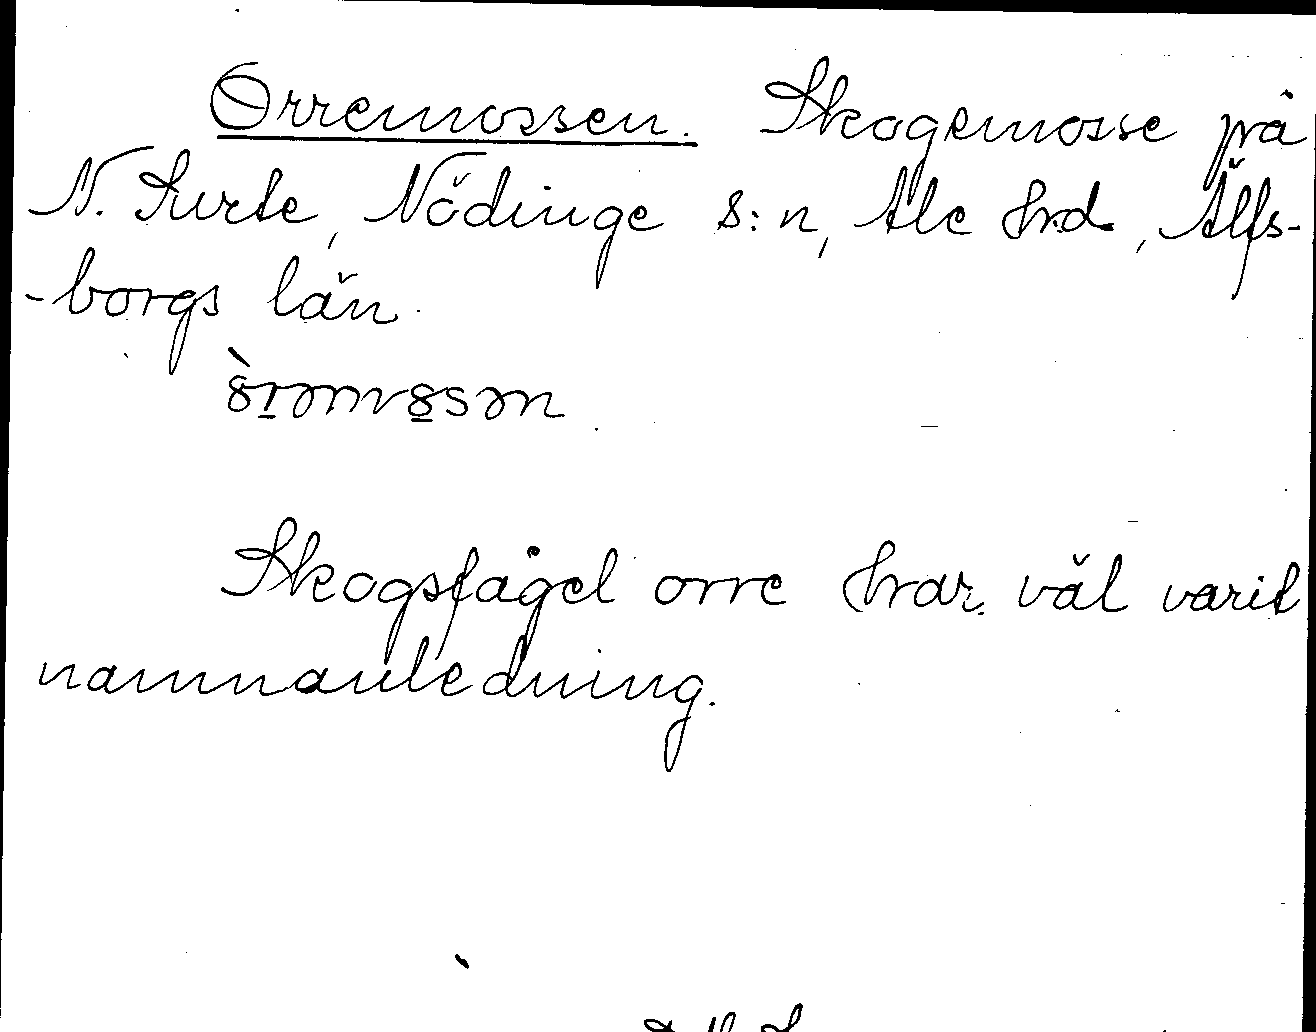 Orremossen. Skogemosse på
N. Surte, Nödinge s:n, Ale hrd, Älfs-
-borgs län.
Skogsfågel orre har väl varit
namnanledning.